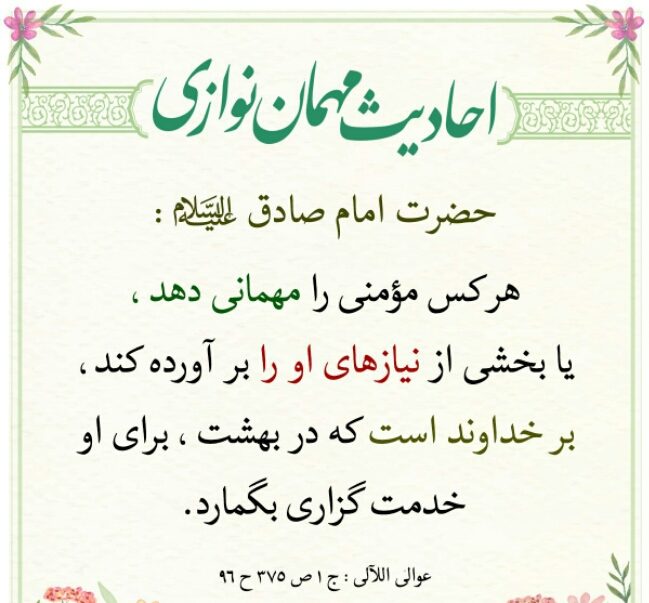 احادیث مهمان نوازی
حضرت امام صادق علیه‌السلام :
هرکس مؤمنی را مهمانی دهد ،
یا بخشی از نیازهای او را بر آورده کند ،
بر خداوند است که در بهشت ، برای او
خدمت گزاری بگمارد.
عوالی اللآلی : ج ۱ ص ۳۷۵ ح ۹۶